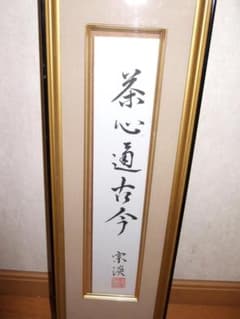 茶心通古今
宗漢